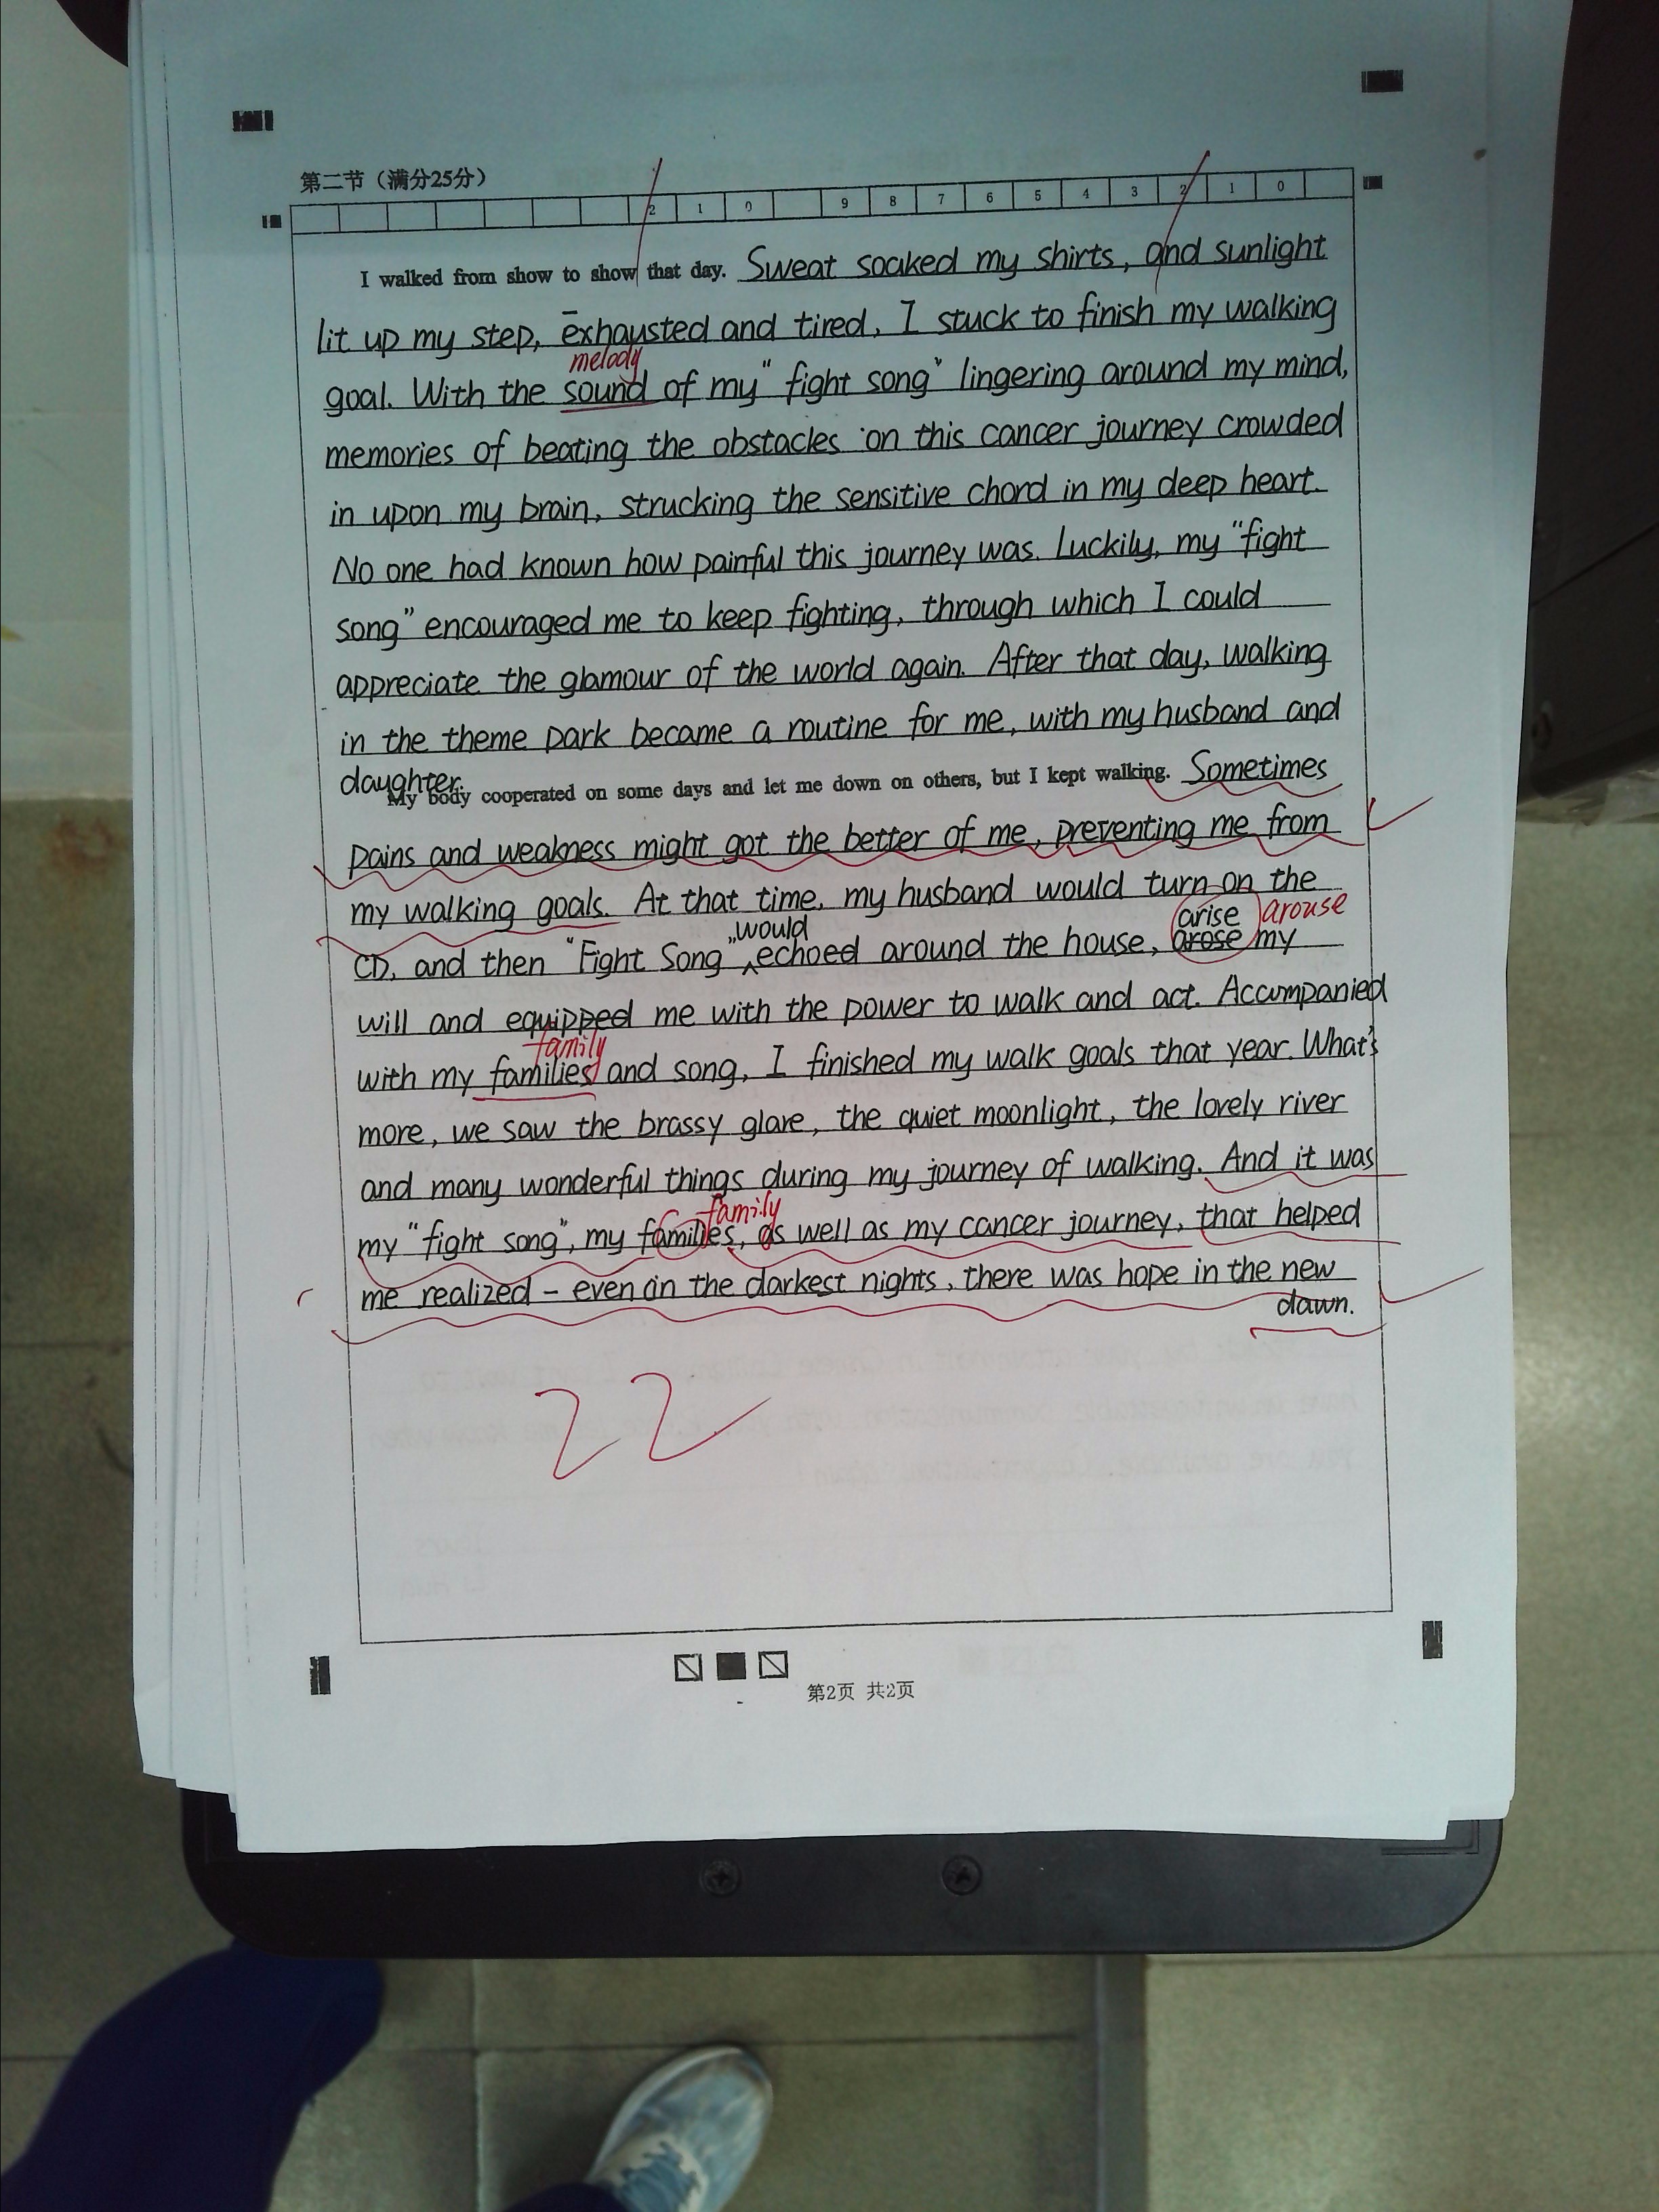 第二节（满分25分）
2 1 0 9 8 7 6 5 4 3 2 1 0
I walked from show to show that day. Sweat soaked my shirts, and sunlight
lit up my step, exhausted and tired, I stuck to finish my walking
melody
goal. With the sound of my "fight song" lingering around my mind,
memories of beating the obstacles on this cancer journey crowded
in upon my brain, strucking the sensitive chord in my deep heart.
No one had known how painful this journey was. Luckily, my "fight
song" encouraged me to keep fighting, through which I could
appreciate the glamour of the world again. After that day, walking
in the theme park became a routine for me, with my husband and
daughter.
My body cooperated on some days and let me down on others, but I kept walking. Sometimes
pains and weakness might got the better of me, preventing me from
my walking goals. At that time, my husband would turn on the
would arise arouse
CD, and then "Fight Song" echoed around the house, arose my
will and equipped me with the power to walk and act. Accompanied
family
with my families and song, I finished my walk goals that year. What's
more, we saw the brassy glare, the quiet moonlight, the lovely river
and many wonderful things during my journey of walking. And it was
family
my "fight song", my families, as well as my cancer journey, that helped
me realized – even in the darkest nights, there was hope in the new
dawn.
22
第2页 共2页